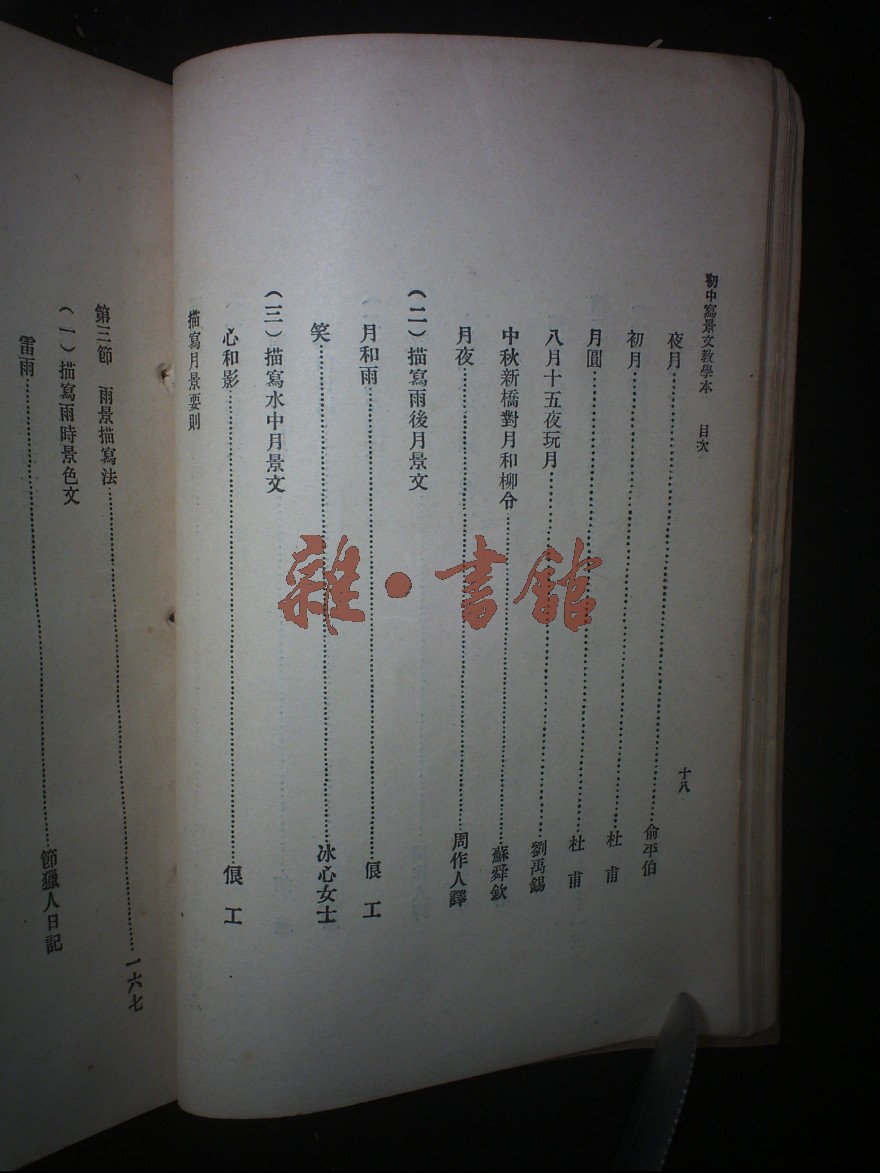 初中寫景文教學本 目次 十八
夜月……俞平伯
初月……杜甫
月圓……杜甫
八月十五夜玩月……劉禹錫
中秋新橋對月和柳令……蘇舜欽
月夜……周作人譯
（二）描寫雨後月景文
月和雨……俍工
笑……冰心女士
（三）描寫水中月景文
心和影……俍工
描寫月景要則
第三節 雨景描寫法……一六七
（一）描寫雨時景色文
雷雨……節獵人日記
雜·書館